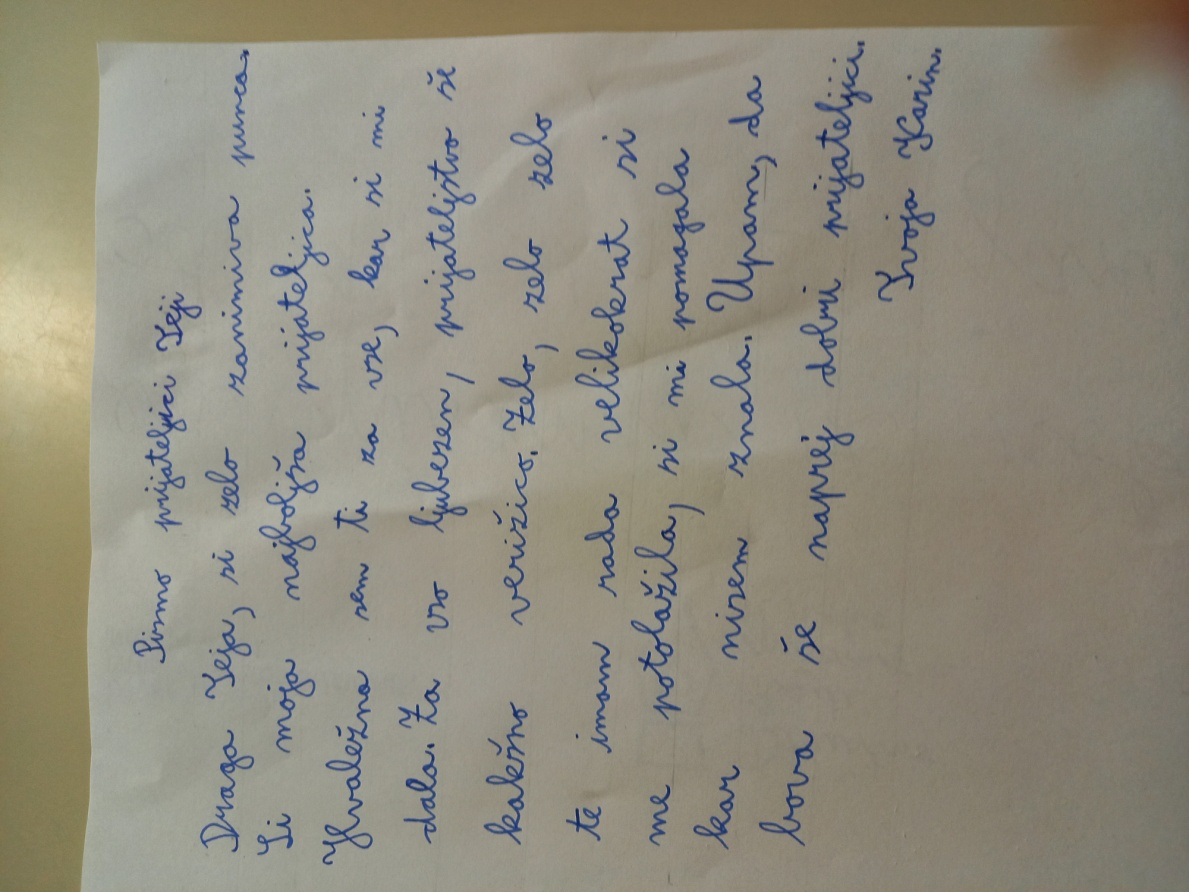 Pismo prijateljici Teji
Draga Teja, si zelo zanimiva punca.
Si moja najboljša prijateljica.
Hvaležna sem ti za vse, kar si mi
dala. Za vso ljubezen, prijateljstvo še
kakšno verižico. Zelo, zelo zelo
te imam rada velikokrat si
me potolažila, si mi pomagala
kar nisem znala. Upam, da
bova še naprej dobri prijateljici.
Tvoja Karin.